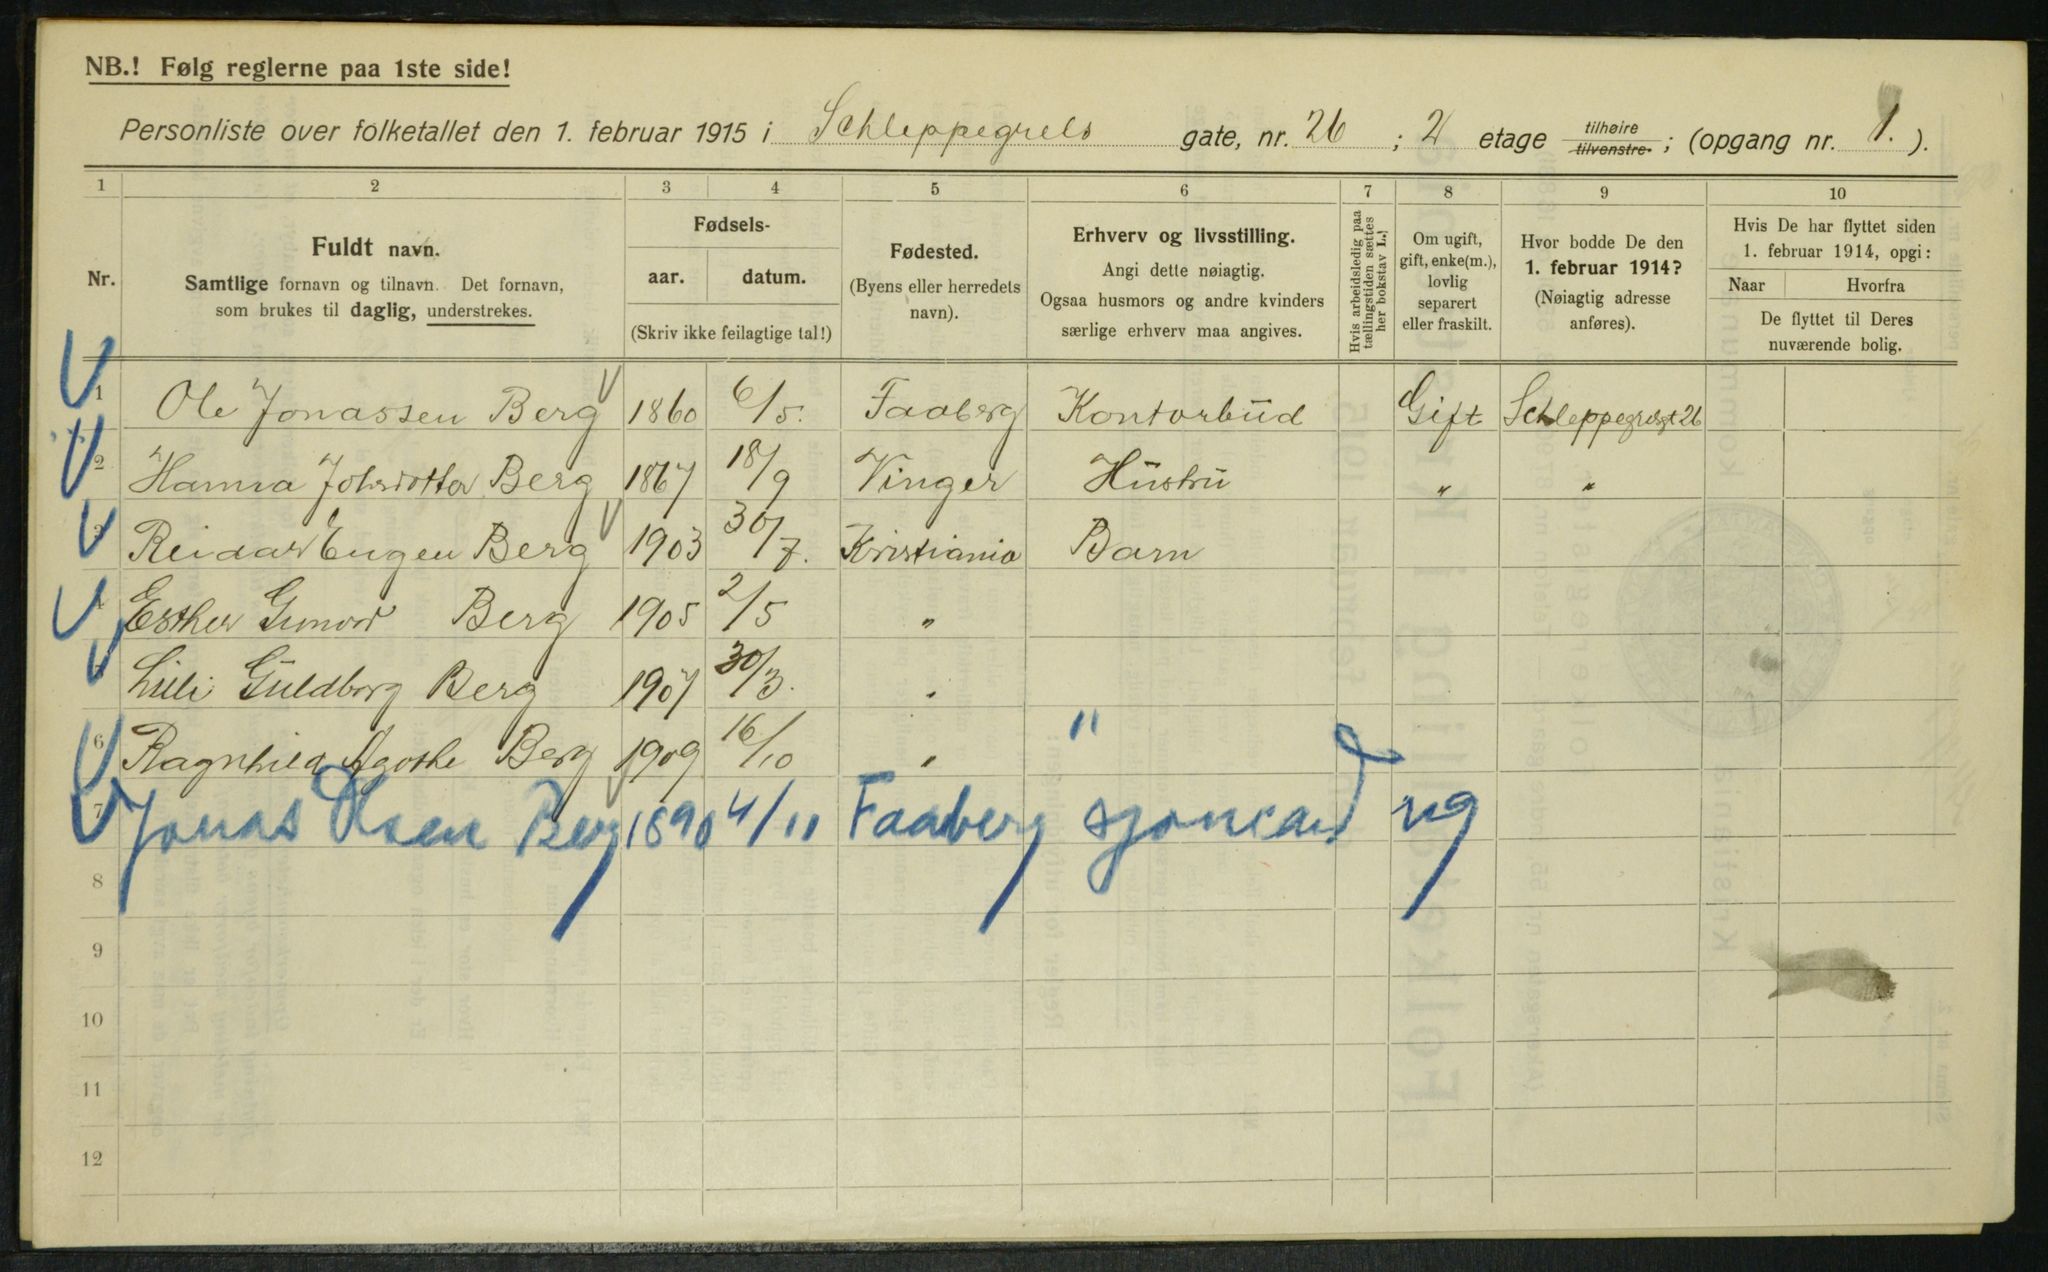 NB.! Følg reglerne paa 1ste side!
Personliste over folketallet den 1. februar 1915 i Schleppegrels gate, nr. 26 ; 2 etage tilhøire tilvenstre ; (opgang nr. 1. ).
1 2 3 4 5 6 7 8 9 10
Nr.
Fuldt navn.
Samtlige fornavn og tilnavn. Det fornavn,
som brukes til daglig, understrekes.
Fødsels-
aar. datum.
(Skriv ikke feilagtige tal!)
Fødested.
(Byens eller herredets
navn).
Erhverv og livsstilling.
Angi dette nøiagtig.
Ogsaa husmors og andre kvinders
særlige erhverv maa angives.
Hvis arbeidsledig paa
tællingstiden sættes
her bokstav L.!
Om ugift,
gift, enke(m.),
lovlig
separert
eller fraskilt.
Hvor bodde De den
1. februar 1914?
(Nøiagtig adresse
anføres).
Hvis De har flyttet siden
1. februar 1914, opgi:
Naar Hvorfra
De flyttet til Deres
nuværende bolig.
1 Ole Jonassen Berg 1860 6/5. Faaberg Kontorbud Gift Schleppegrelsgt 26
2 Hanna Johsdotter Berg 1867 18/9 Vinger Hustru " "
3 Reidar Eugen Berg 1903 30/7. Kristiania Barn
4 Esther Gunvor Berg 1905 2/5 "
Lilli Guldborg Berg 1907 30/3. "
6 Ragnhild Agothe Berg 1909 16/10 " "
7 Jonas Olsen Berg 1890 4/11 Faaberg sjømand ug
8
9
10
11
12